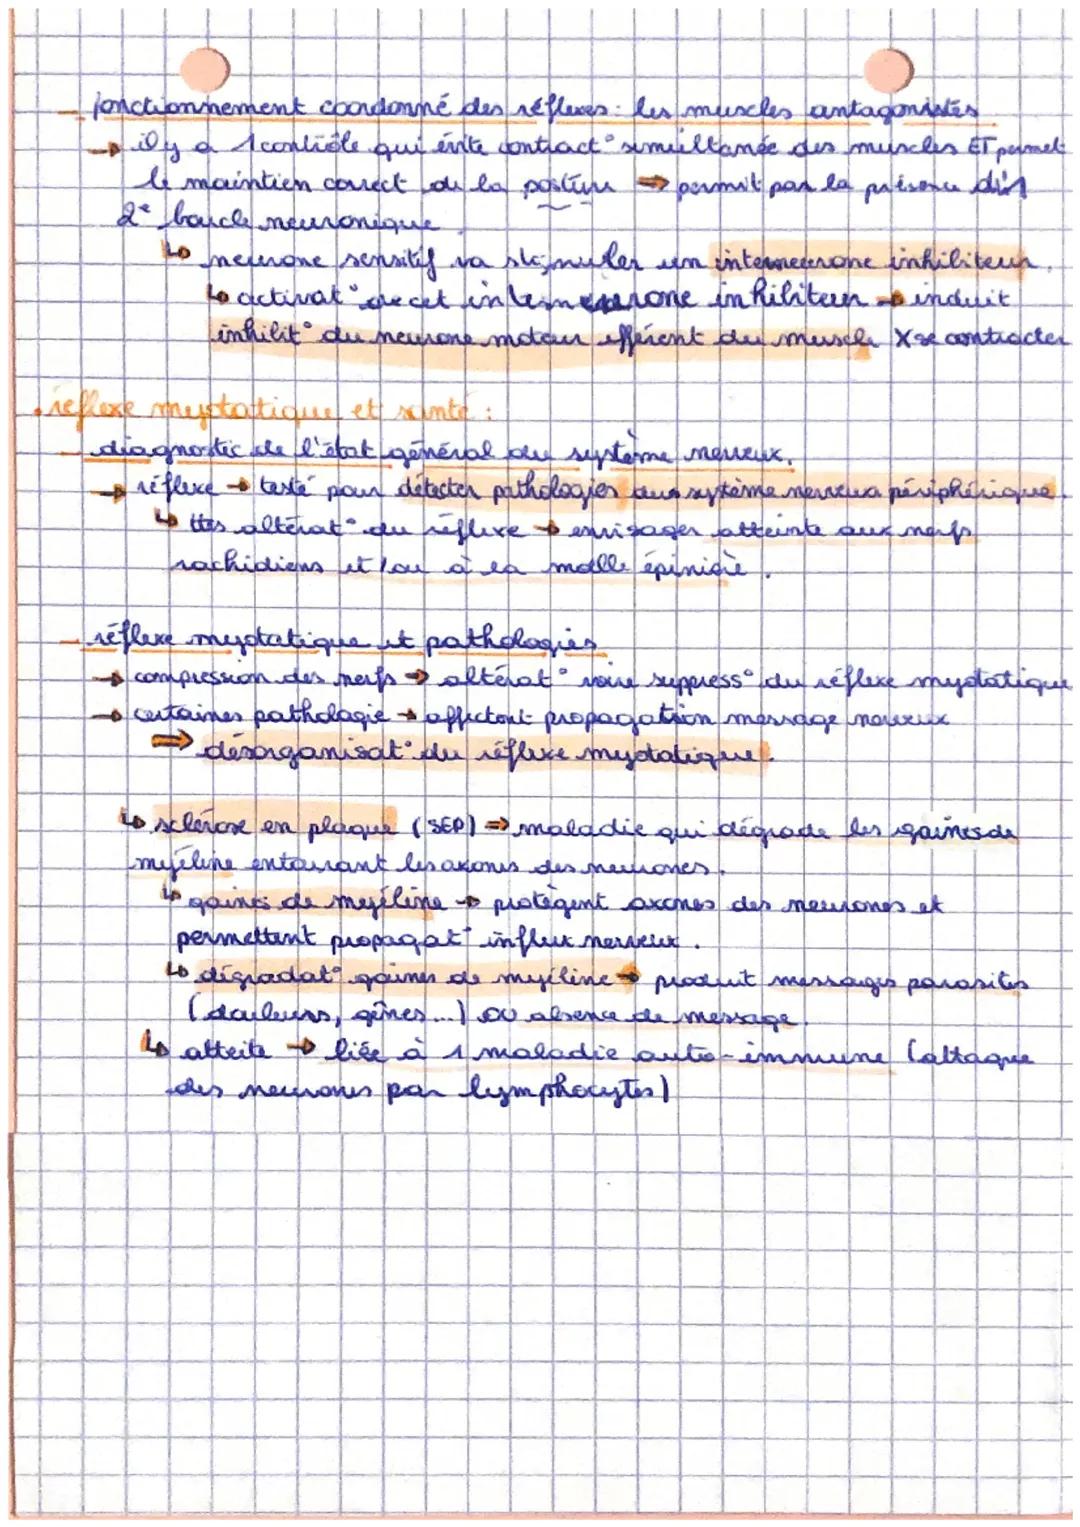 - fonctionnement coordonné des réflexes : les muscles antagonistes
→ il y a 1 contrôle qui évite contract° simultanée des muscles ET permet
le maintien correct de la posture ⇒ permit par la présence d'1
2e boucle neuronique
↳ neurone sensitif va stimuler un interneurone inhibiteur.
↳ activat° de cet interneurone inhibiteur → induit
inhibit° du neurone moteur efférent du muscle X se contracter
• réflexe myotatique et santé :
- diagnostic de l'état général du système nerveux.
→ réflexe → testé pour détecter pathologies du système nerveux périphérique.
↳ ttes altérat° du réflexe → envisager atteinte aux nerfs
rachidiens et/ou à la moelle épinière.
- réflexe myotatique et pathologies
→ compression des nerfs → altérat° voire suppress° du réflexe myotatique
→ certaines pathologie → affectent propagation message nerveux
⇒ désorganisat° du réflexe myotatique.
↳ sclérose en plaque (SEP) ⇒ maladie qui dégrade les gaines de
myéline entourant les axones des neurones.
↳ gaines de myéline → protègent axones des neurones et
permettent propagat° influx nerveux.
↳ dégradat° gaines de myéline → produit messages parasites
(douleurs, gênes...) ou absence de message.
↳ atteite → liée à 1 maladie auto-immune (attaque
des neurones par lymphocytes)